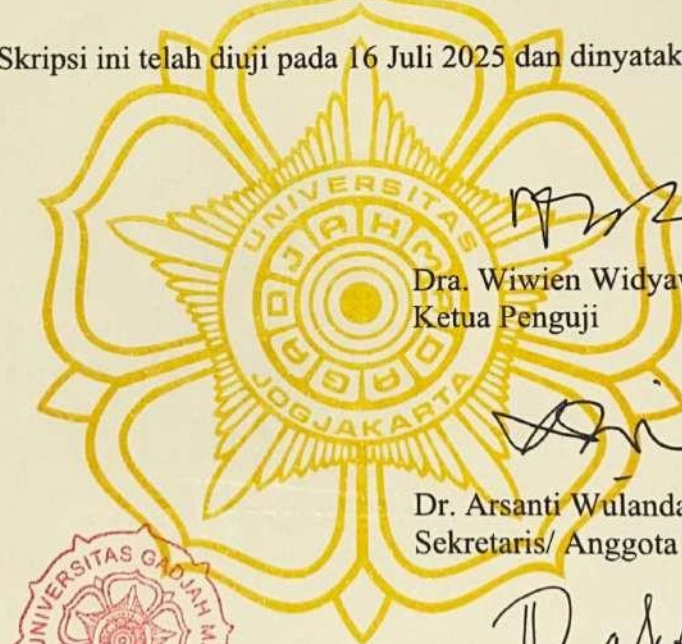 Skripsi ini telah diuji pada 16 Juli 2025 dan dinyatak
UNIVERSITAS
GADJAH MADA
JOGJAKARTA
Dra. Wiwien Widya
Ketua Penguji
Dr. Arsanti Wulanda
Sekretaris/ Anggota
UNIVERSITAS GADJAH MA